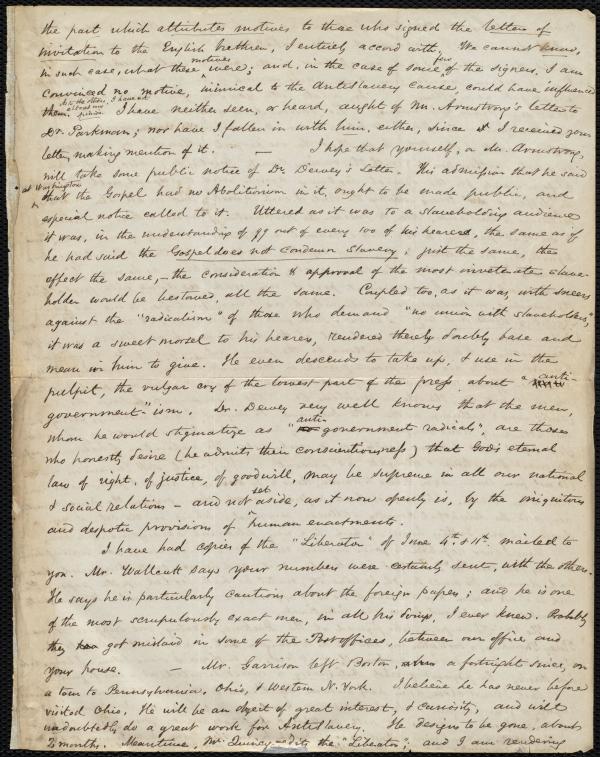 the part which attributes motives to those who signed the letter of
invitation to the English brethren, I entirely accord with. We cannot know,
in such case, what these motives were; and, in the case of some few of the signers, I am
convinced no motive, inimical to the Antislavery cause, could have influenced
them. As to the others, I have not I have neither seen, or heard, aught of Mr. Armstrong's letter to
Dr. Parkman; nor have I fallen in with him, either, since I received your
letter, making mention of it. — I hope that yourself, or Mr. Armstrong,
will take some public notice of Dr. Dewey's Letter. His admission that he said
at Washington
that the Gospel had no Abolitionism in it, ought to be made public, and
especial notice called to it. Uttered as it was to a slaveholding audience
it was, in the understanding of 99 out of every 100 of his hearers, the same as if
he had said the Gospel does not condemn Slavery; just the same, the
effect the same,—the consideration & approval of the most inveterate slave-
holder would be bestowed, all the same. Coupled too, as it was, with sneers
against the "radicalism" of those who demand "no union with slaveholders,"
it was a sweet morsel to his hearers, rendered thereby doubly base and
mean in him to give. He even descends to take up, & use in the
pulpit, the vulgar cry of the lowest part of the press about "anti-
government"-ism. Dr. Dewey very well knows that the men,
whom he would stigmatize as "anti-government radicals", are those
who honestly desire (he admits their conscientiousness) that God's eternal
law of right, of justice, of goodwill, may be supreme in all our national
& social relations – and not set aside, as it now openly is, by the iniquitous
and despotic provisions of human enactments.
I have had copies of the "Liberator" of June 4th & 11th mailed to
you. Mr. Wallcutt says your numbers were certainly sent, with the others.
He says he is particularly cautious about the foreign papers; and he is one
of the most scrupulously exact men, in all his doings, I ever knew. Probably
they got mislaid in some of the Post offices, between our office and
your house. — Mr. Garrison left Boston, a fortnight since, on
a tour to Pennsylvania, Ohio, & Western N. York. I believe he has never before
visited Ohio. He will be an object of great interest, & curiosity, and will
undoubtedly do a great work for Antislavery. He designs to be gone, about
2 months. Meantime, Mr. Quincy edits the "Liberator"; and I am rendering